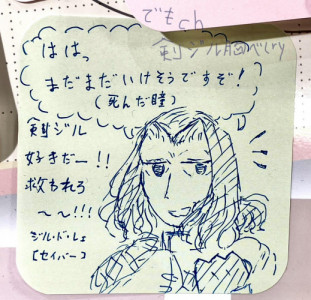 でもch
剣ジル
はは、
まだまだいけそうですぞ!
(死んだ瞳)
剣ジル
好きだー!!
救われろ
〜〜!!!
ジル・ド・レェ
[セイバー]